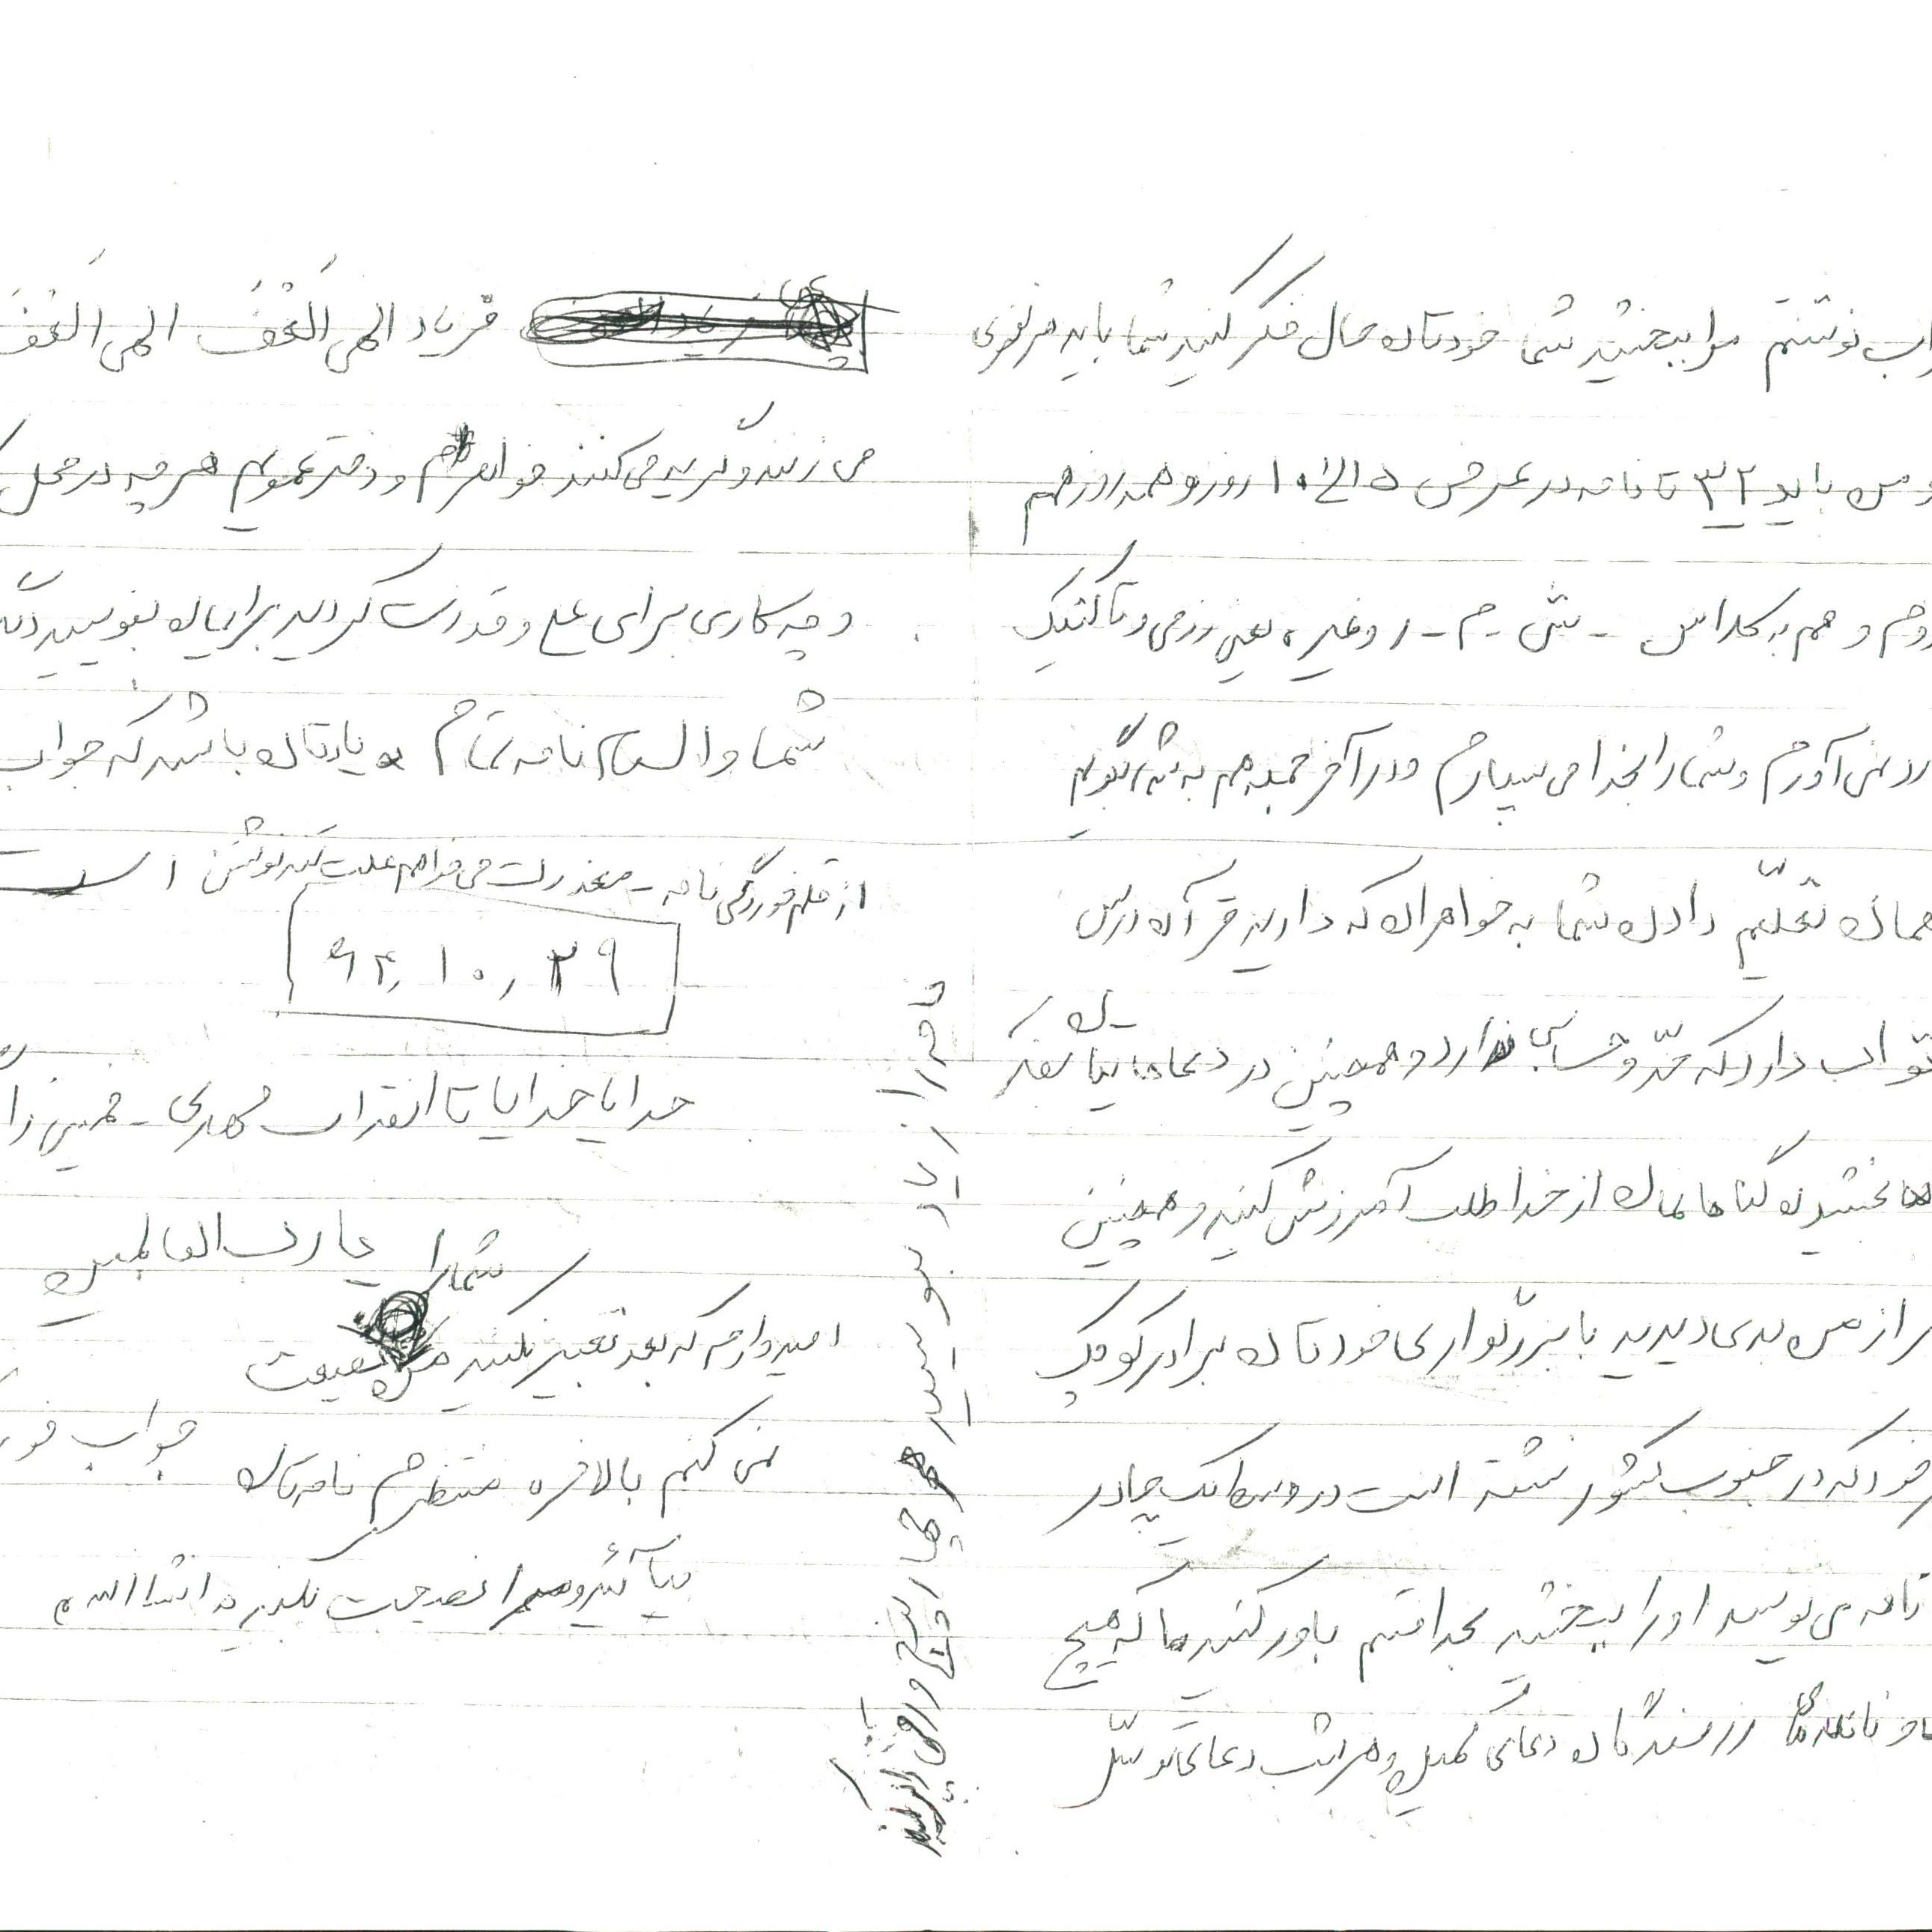 نوشتم مرا ببخشید شما خودتان حال فکر کنید شما باید هر نفری
من باید ۳۲ تا نامه در عرض ۵ الی ۱۰ روز و همه روز هم
روم و هم به کلاس - ش - م - ر وغیره یعنی رزمی و تاکتیک
نمی آورم و شما را بخدا می سپارم و در آخر جمله هم به شما بگویم
همان تعلیم دادن شما به خواهران که دارید قرآن درس
ثواب دارد که حدّ و حسابی ندارد و همچنین در دعاهایتان
بخشیدن گناهانمان از خدا طلب آمرزش کنید و همچنین
از من بدی دیدید با بزرگواری خودتان برادر کوچک
خود که در جنوب کشور نشسته است در وسط یک چادر
نامه می نویسد او را ببخشید بخدا قسم باور کنید ما که هیچ
رزمندگان دعای کمیل و هر شب دعای توسّل
فریاد الهی العَفْف الهی العَفْف
می زنند و گریه می کنند خواهرم و دختر عمویم هر چه در محل
و چه کاری برای علی و قدرت کردید برایمان بنویسید
شما والسلام نامه تمام یادتان باشد که جواب
از قلم خوردگی نامه - معذرت می خواهم علت تند نوشتن است
۶۴,۱۰,۲۹
خدایا خدایا تا انقلاب مهدی - خمینی را
یا رب العالمین
امیدوارم که بعد تعبیر نکنید شما را نصیحت
نمی کنم بالاخره منتظرم نامه تان جواب
بیآئید و مرا نصیحت بکنید انشاالله
نامه را زیاد بنویسید چهار پنج ورقی